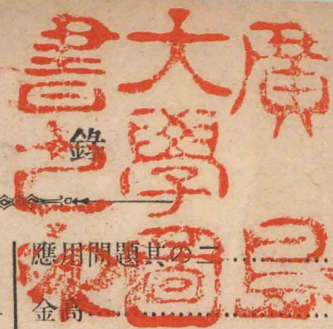 廣島
大學圖
書之印
錄
應用問題其の二
金高